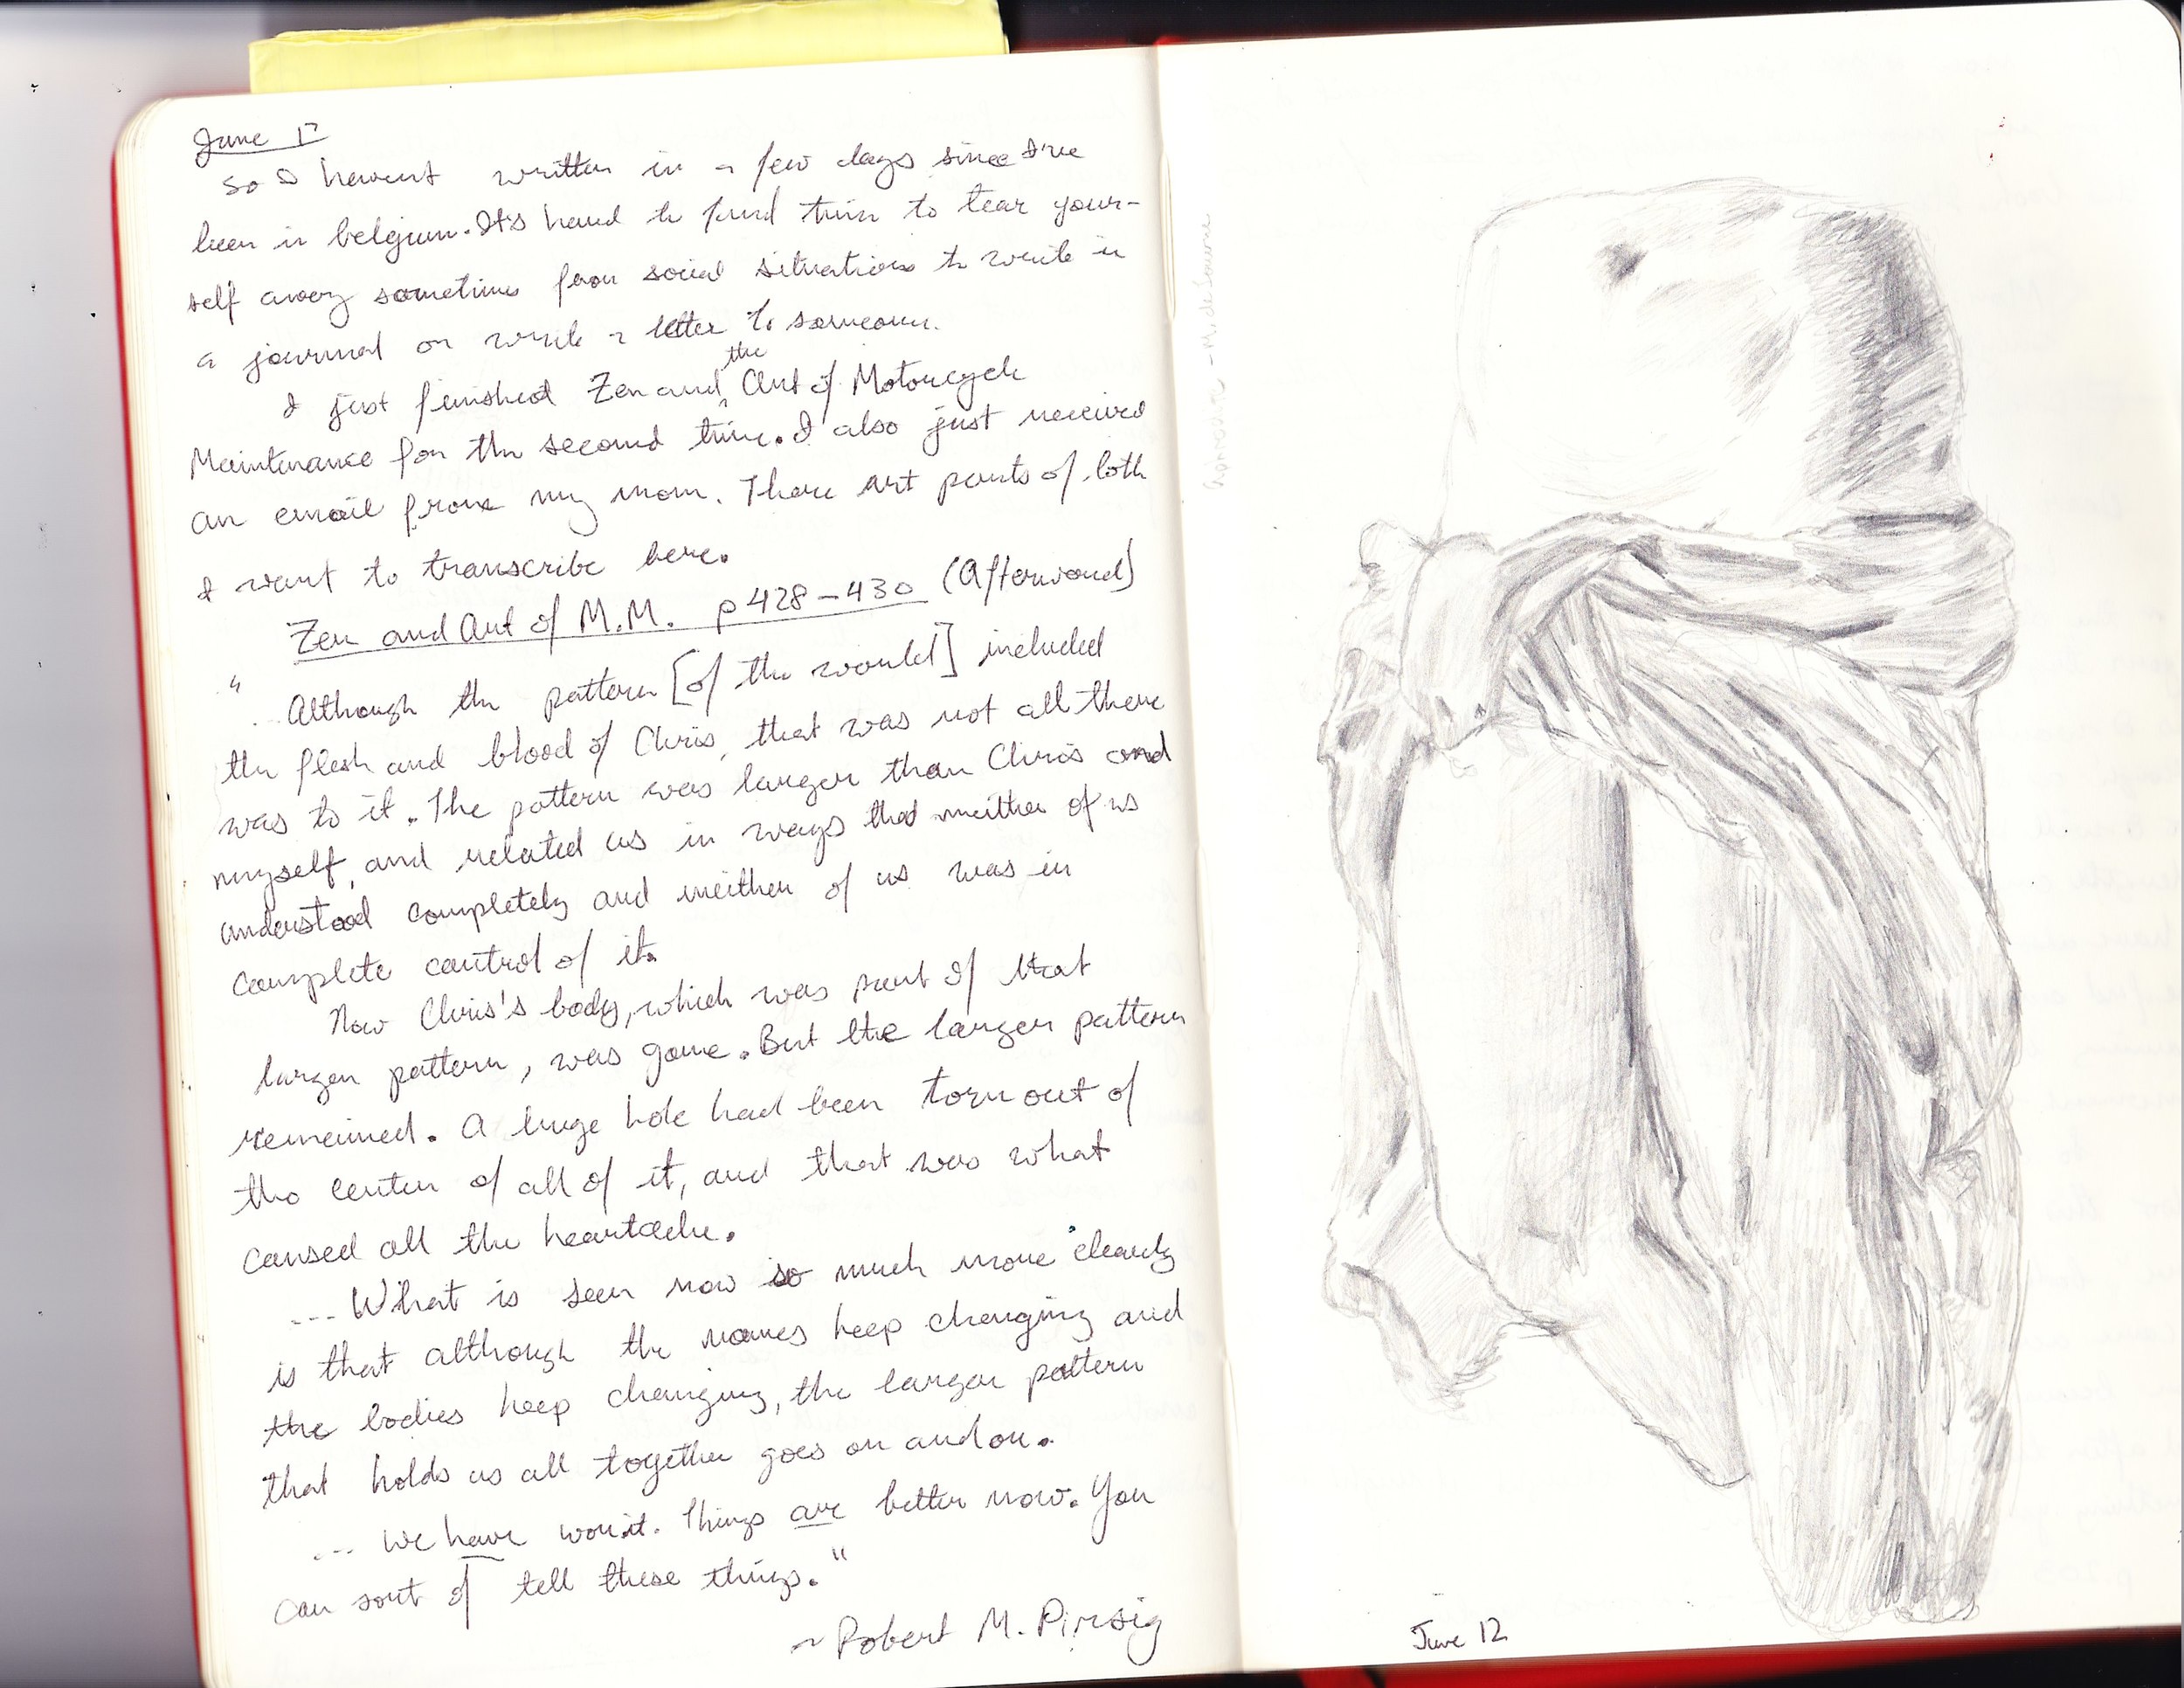 June 17
so I havent written in a few days since I've
been in belgium. It's hard to find time to tear your-
self away sometimes from social situations to write in
a journal or write a letter to someone.
I just finished Zen and the Art of Motorcycle
Maintenance for the second time. I also just received
an email from my mom. There are parts of both
I want to transcribe here.
Zen and Art of M.M. p 428-430 (Afterword)
" ... Although the pattern [of the world] included
the flesh and blood of Chris, that was not all there
was to it. The pattern was larger than Chris and
myself, and related us in ways that neither of us
understood completely and neither of us was in
complete control of it.
Now Chris's body, which was part of that
larger pattern, was gone. But the larger pattern
remained. A huge hole had been torn out of
the center of all of it, and that was what
caused all the heartache.
... What is seen now so much more clearly
is that although the names keep changing and
the bodies keep changing, the larger pattern
that holds us all together goes on and on.
... We have won it. Things are better now. You
can sort of tell these things."
~ Robert M. Pirsig
June 12